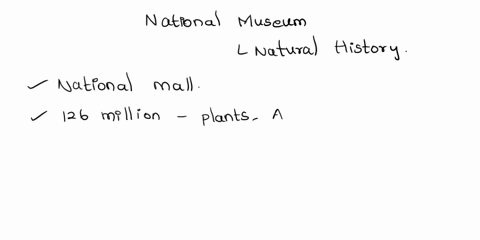 National Museum
L Natural History.
✓ National mall.
✓ 126 million - plants - A